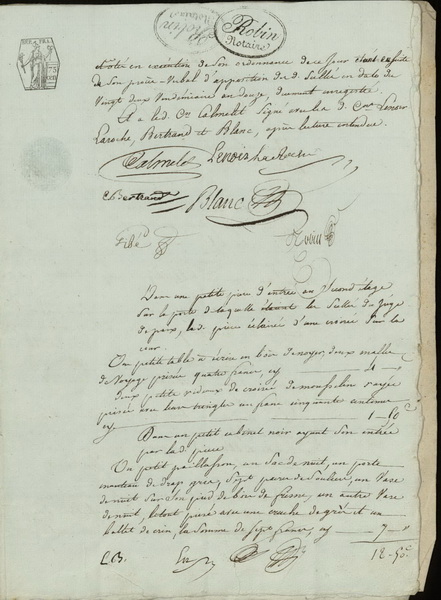 Robin
Notaire
et ôté en exécution de son ordonnance de ce jour étant en suite
de son procès-verbal d'apposition des d. Scellés en date du
Vingt deux Vendémiaire an douze, dument enregistré.
Et a led. Cen Calmelet Signé avec les d. Cens Lenoir
Laroche, Bertrand et Blanc, après lecture
Calmelet Lenoir Laroche
C Bertrand Blanc
Robin
Dans une petite pièce d'entrée au Second étage
Sur la porte de laquelle étaient les Scellés du Juge
de paix, lad. pièce éclairée d'une croisée Sur la
cour.
Une petite table à écrire en bois de noyer, deux malles
de Voyage prisées quatre francs, cy 4 "
deux petits rideaux de croisée de mousseline rayée
prisés avec leur tringle un franc cinquante centimes
cy 1 - 50c
Dans un petit cabinet noir ayant Son entrée
par lad. pièce
Un petit paillasson, un Sac de nuit, un porte
manteau de drap gris, Sept paires de Souliers, un Vase
de nuit Sur Son pied de bois de frêne, un autre Vase
de nuit, le tout prisé avec une cruche de grès et un
ballet de crin, la Somme de Sept francs, cy 7 - "
L.B. 12 - 50c